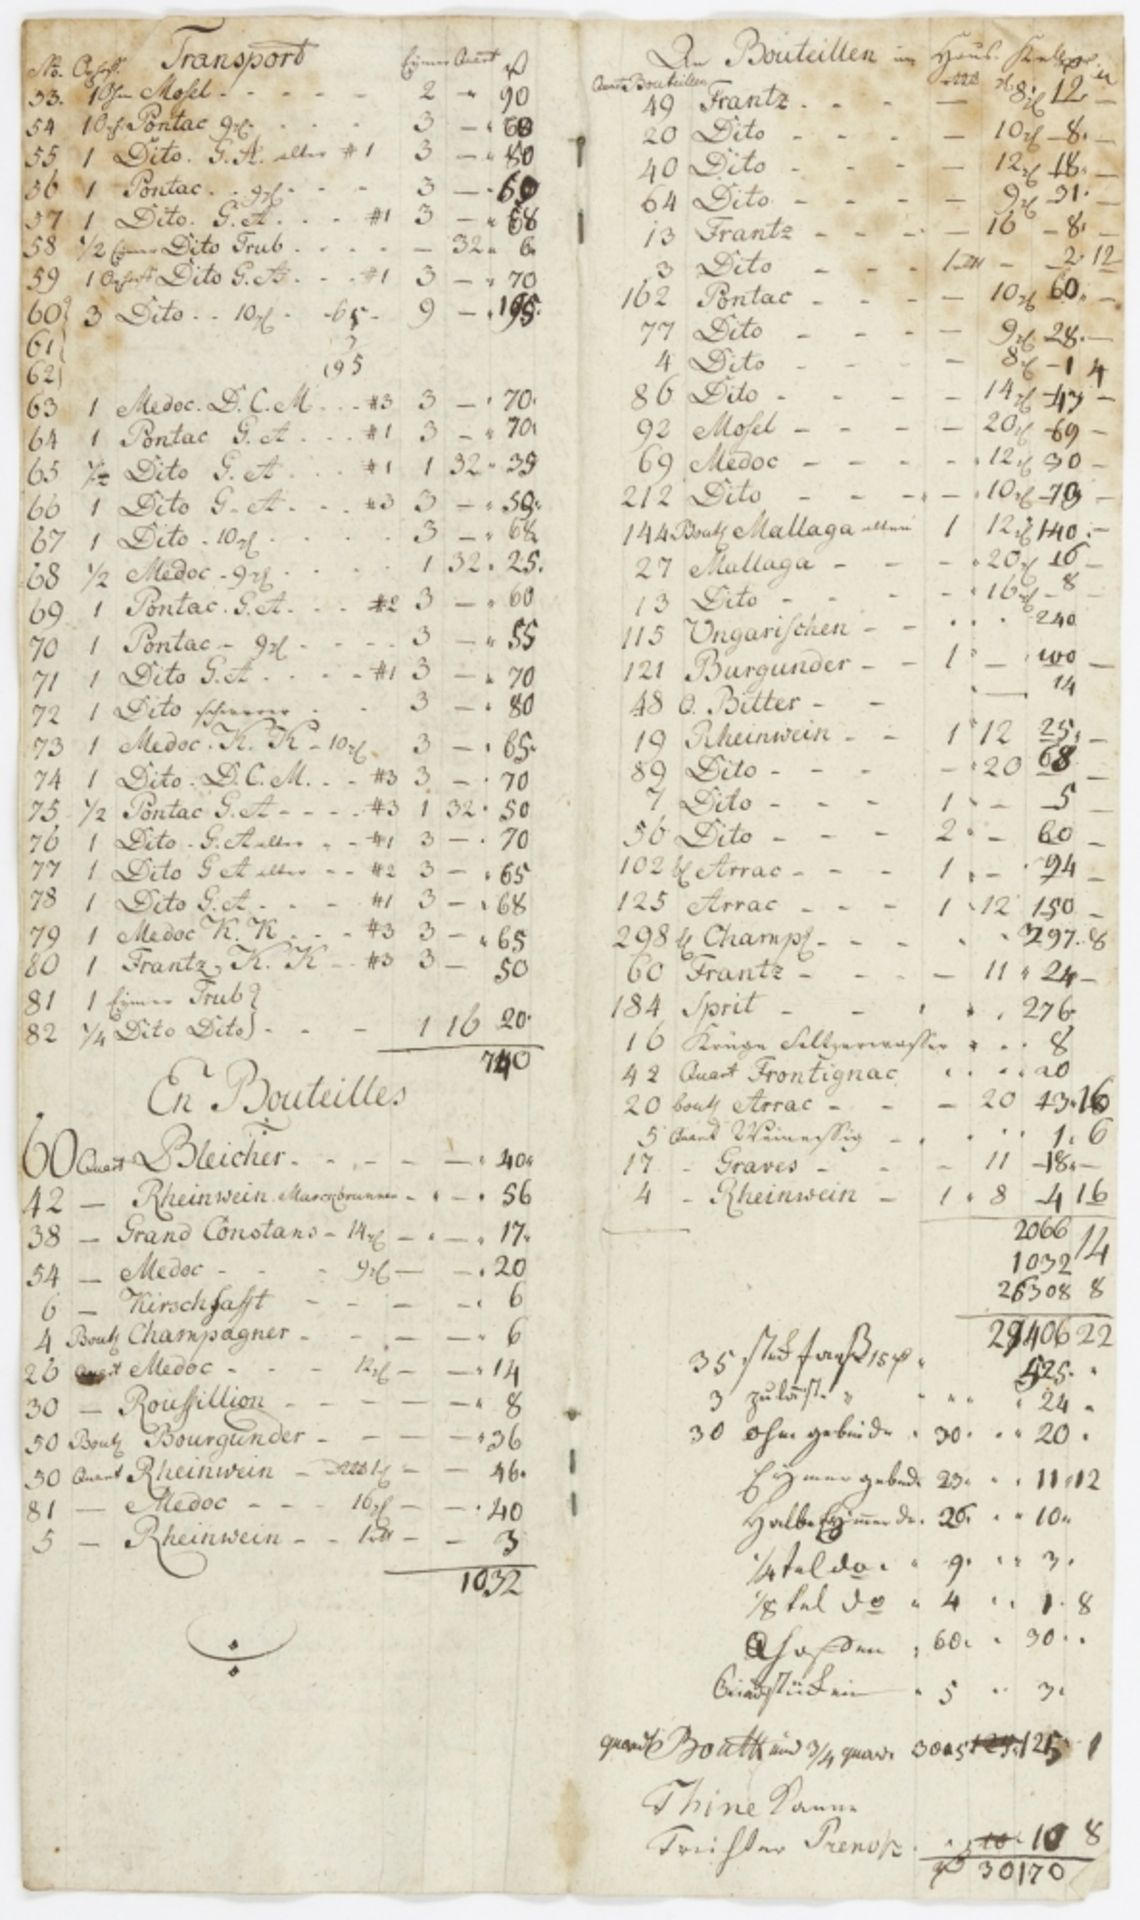 Transport
No. Oxhoft. Eymer Quart
53. 1 Ohm Mosel - - - - - 2 - 90
54 1 Oxh. Pontac 9 - - - 3 - 60
55 1 Dito. G. A. alter #1 3 - 80
56 1 Pontac - 9 - - 3 - 60
57 1 Dito. G. A. - - #1 3 - 68
58 1/2 Eymer Dito Trub - - - - 32 6.
59 1 Oxhoft Dito G. A. - - #1 3 - 70
60 3 Dito - - 10 - 65 - 9 - 195.
61 3
62 195
63 1 Medoc. D. C. M. - - #3 3 - 70.
64 1 Pontac G. A - - - #1 3 - 70
65 1/2 Dito G. A - - - #1 1 32 35
66 1 Dito G. A - - - #3 3 - 50.
67 1 Dito - 10 - - - - 3 - 62
68 1/2 Medoc - 9 - - - - 1 32 25.
69 1 Pontac. G. A. - - #2 3 - 60
70 1 Pontac - 9 - - - - 3 - 55
71 1 Dito G. A - - - - #1 3 - 70
72 1 Dito - - 3 - 80
73 1 Medoc. K. K - 10 3 - 65.
74 1 Dito. D. C. M. - - #3 3 - 70
75 1/2 Pontac G. A - - - - #3 1 32 50
76 1 Dito - G. A alter - - #1 3 - 70
77 1 Dito G A alter - - #2 3 - 65
78 1 Dito G. A - - - #1 3 - 68
79 1 Medoc K. K - - - #3 3 - 65
80 1 Frantz, K. K - - #3 3 - 50
81 1 Eymer Trub
82 1/4 Dito Dito - - - 1 16 20.
740
En Bouteilles
60 Quart Bleicher. - - - - - 40.
42 - Rheinwein Marckbrunner - - 56
38 - Grand Constans - 14 - - 17.
54 - Medoc - - - 9 - - 20
6 - Kirschsafft - - - - 6
4 Bout Champagner - - - - - 6
26 Quart Medoc - - - 12 - - 14
30 - Roussillion - - - - - 8
50 Bout Bourgunder - - - - 36
50 Quart Rheinwein - - - 46.
81 - Medoc - - - 16 - - 40
5 - Rheinwein - - - - 3
1032
An Bouteillen im Haus Keller
Quart Bouteillen
49 Frantz - - - - 8 12 -
20 Dito - - - - 10 - 8. -
40 Dito - - - - 12 18. -
64 Dito - - - - 9 31. -
13 Frantz - - - - 16 - 8. -
3 Dito - - - - 2. 12
162 Pontac - - - - 10 60. -
77 Dito - - - 9 28. -
4 Dito - - - - 8 - 1 4
86 Dito - - - - 14 43 -
92 Mosel - - - - 20 69 -
69 Medoc - - - - 12 30 -
212 Dito - - - - 10 70 -
144 Bout Mallaga 1 12 140. -
27 Mallaga - - - - 20 16 -
13 Dito - - - - 16 - 8 -
115 Ungarischen - - 240
121 Burgunder - - 1 - 100 -
48 O. Bitter - - - 14
19 Rheinwein - - 1 12 25. -
89 Dito - - - - 20 68 -
7 Dito - - - 1 - 5 -
56 Dito - - - 2 - 60 -
102 Arrac - - - 1 - 94 -
125 Arrac - - - 1 12 150 -
298 Champ - - - 297. 8
60 Frantz - - - - 11 24 -
184 Sprit - - 276.
16 Krüge Seltzerwasser 8
42 Quart Frontignac 20
20 bout Arrac - - - - 20 43. 16
5 Quart Weinessig - 1. 6
17 - Graves - - - 11 - 18. -
4 - Rheinwein - 1 8 - 4 16
2066 14
1032
26308 8
29406 22
35 15 525.
3 24
30 Ohm gebinde 30. 20.
Eymer gebinde 23. 11. 12
Halbe Eymer do. 26. 10.
1/4 tel do. 9. 3.
1/8 tel do 4 1. 8
60. 30.
5 3.
quart Bout und 3/4 quart 3005 125 1
Thine
Trichter 10 8
30170